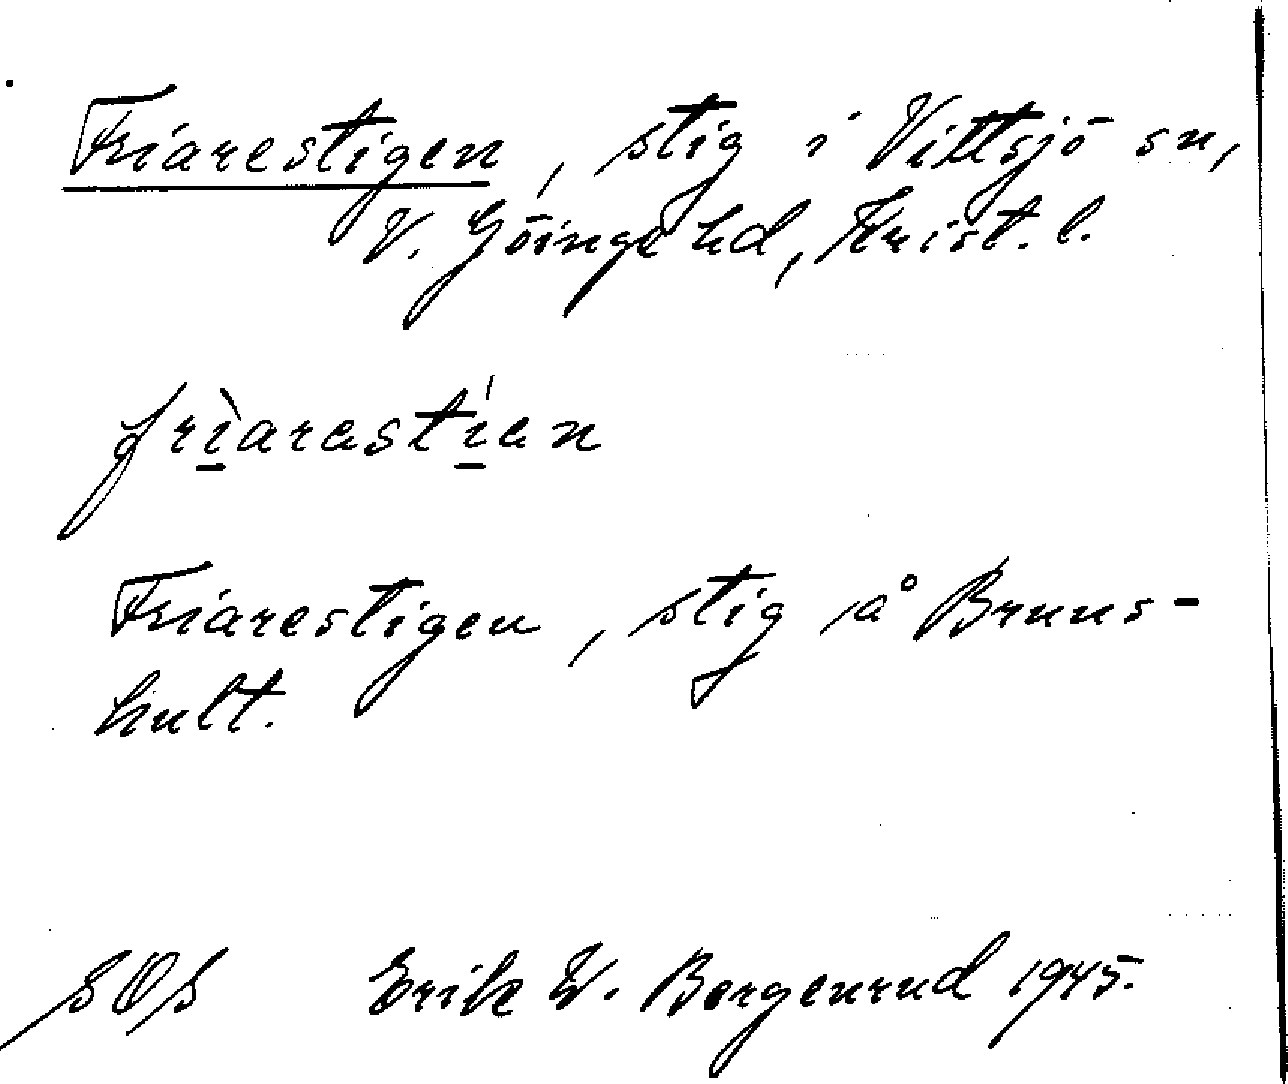 Friarestigen, stig i Vittsjö sn,
V. Göinge hd, Krist. l.
frìarastían
Friarestigen, stig på Bruns-
hult.
SOS Erik W. Borgenrud 1945.